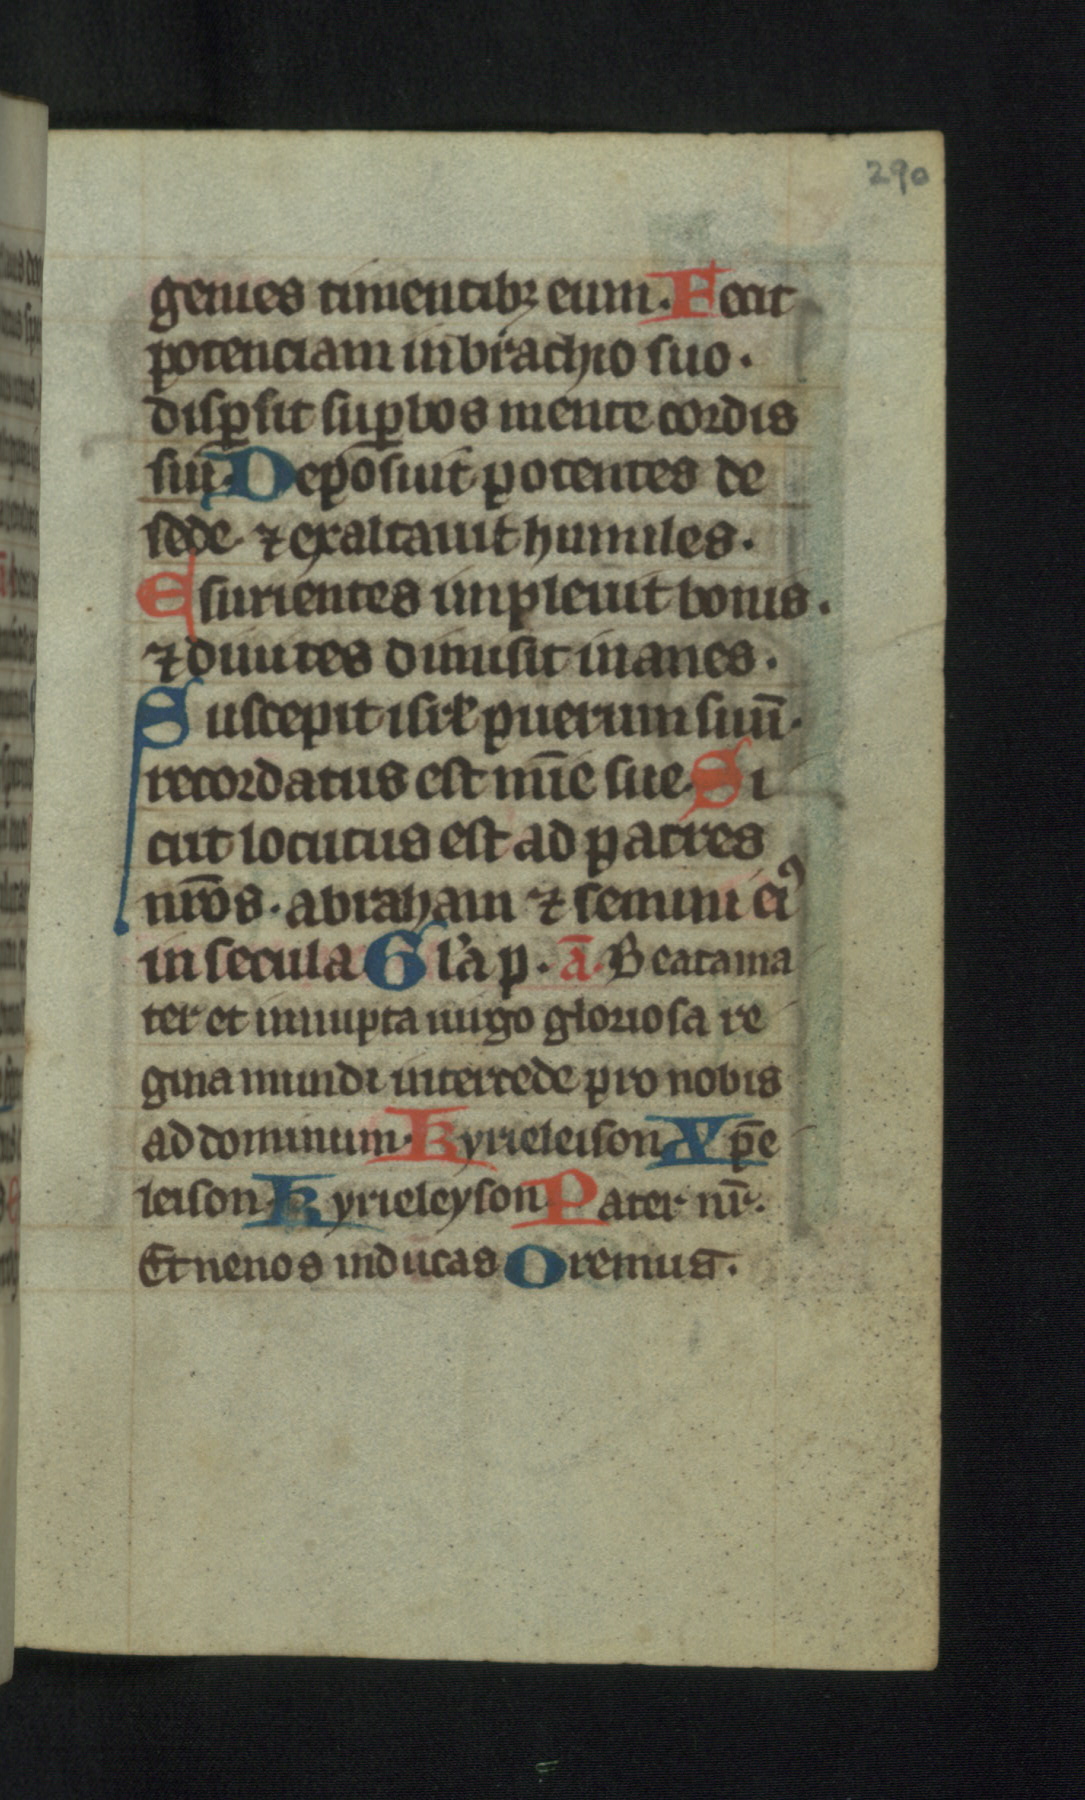 290
genies timentibꝫ eum. Fecit
potenciam in brachio suo.
disꝑsit suꝑbos mente cordis
sui. Deposuit potentes de
sede ⁊ exaltauit humiles.
Esurientes impleuit bonis.
⁊ diuites dimisit inanes.
Suscepit isrl̄ puerum suū.
recordatus est mīe sue. Si
cut locutus est ad patres
nr̄os. abraham ⁊ semini eiꝰ
in secula Gl'a p. ā. Beata ma
ter et innupta uirgo gloriosa re
gina mundi intercede pro nobis
ad dominum. Kyrieleison Xp̄e
leison Kyrieleyson Pater nr̄.
Et ne nos inducas Oremus.